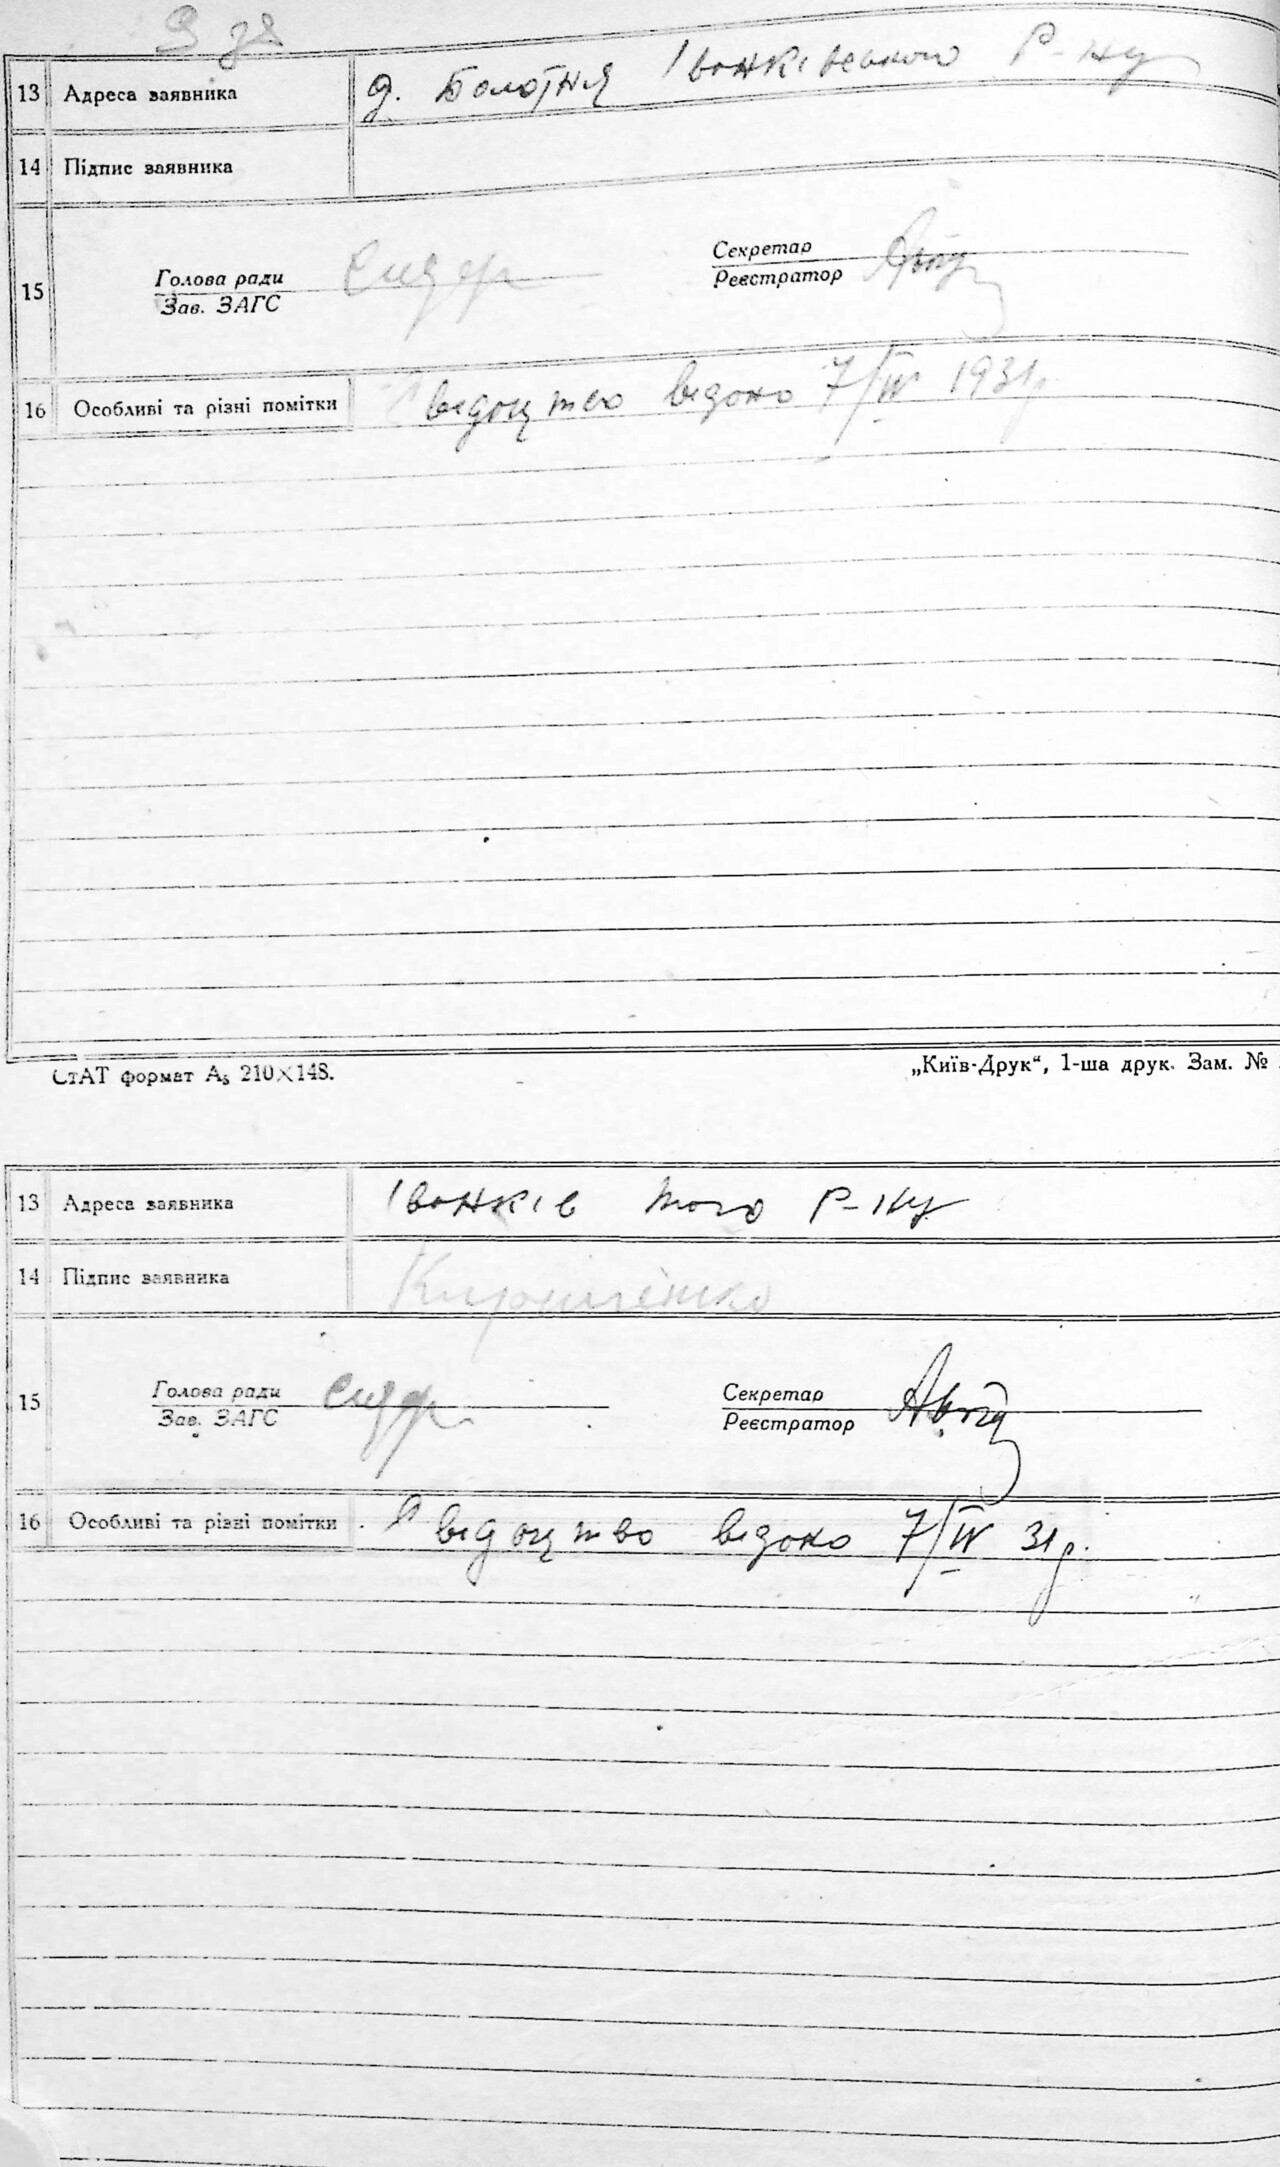 13 Адреса заявника д. Болотня Іванківського Р-ну
14 Підпис заявника
15 Голова ради Секретар
Зав. ЗАГС Реєстратор
16 Особливі та різні помітки Свідоцтво видоно 7/IV 1931р.
СтАТ формат А5 210×148. „Київ-Друк“, 1-ша друк. Зам. №
13 Адреса заявника Іванків того Р-ну
14 Підпис заявника
15 Голова ради Секретар
Зав. ЗАГС Реєстратор
16 Особливі та різні помітки Свідоцтво видоно 7/IV 31р.